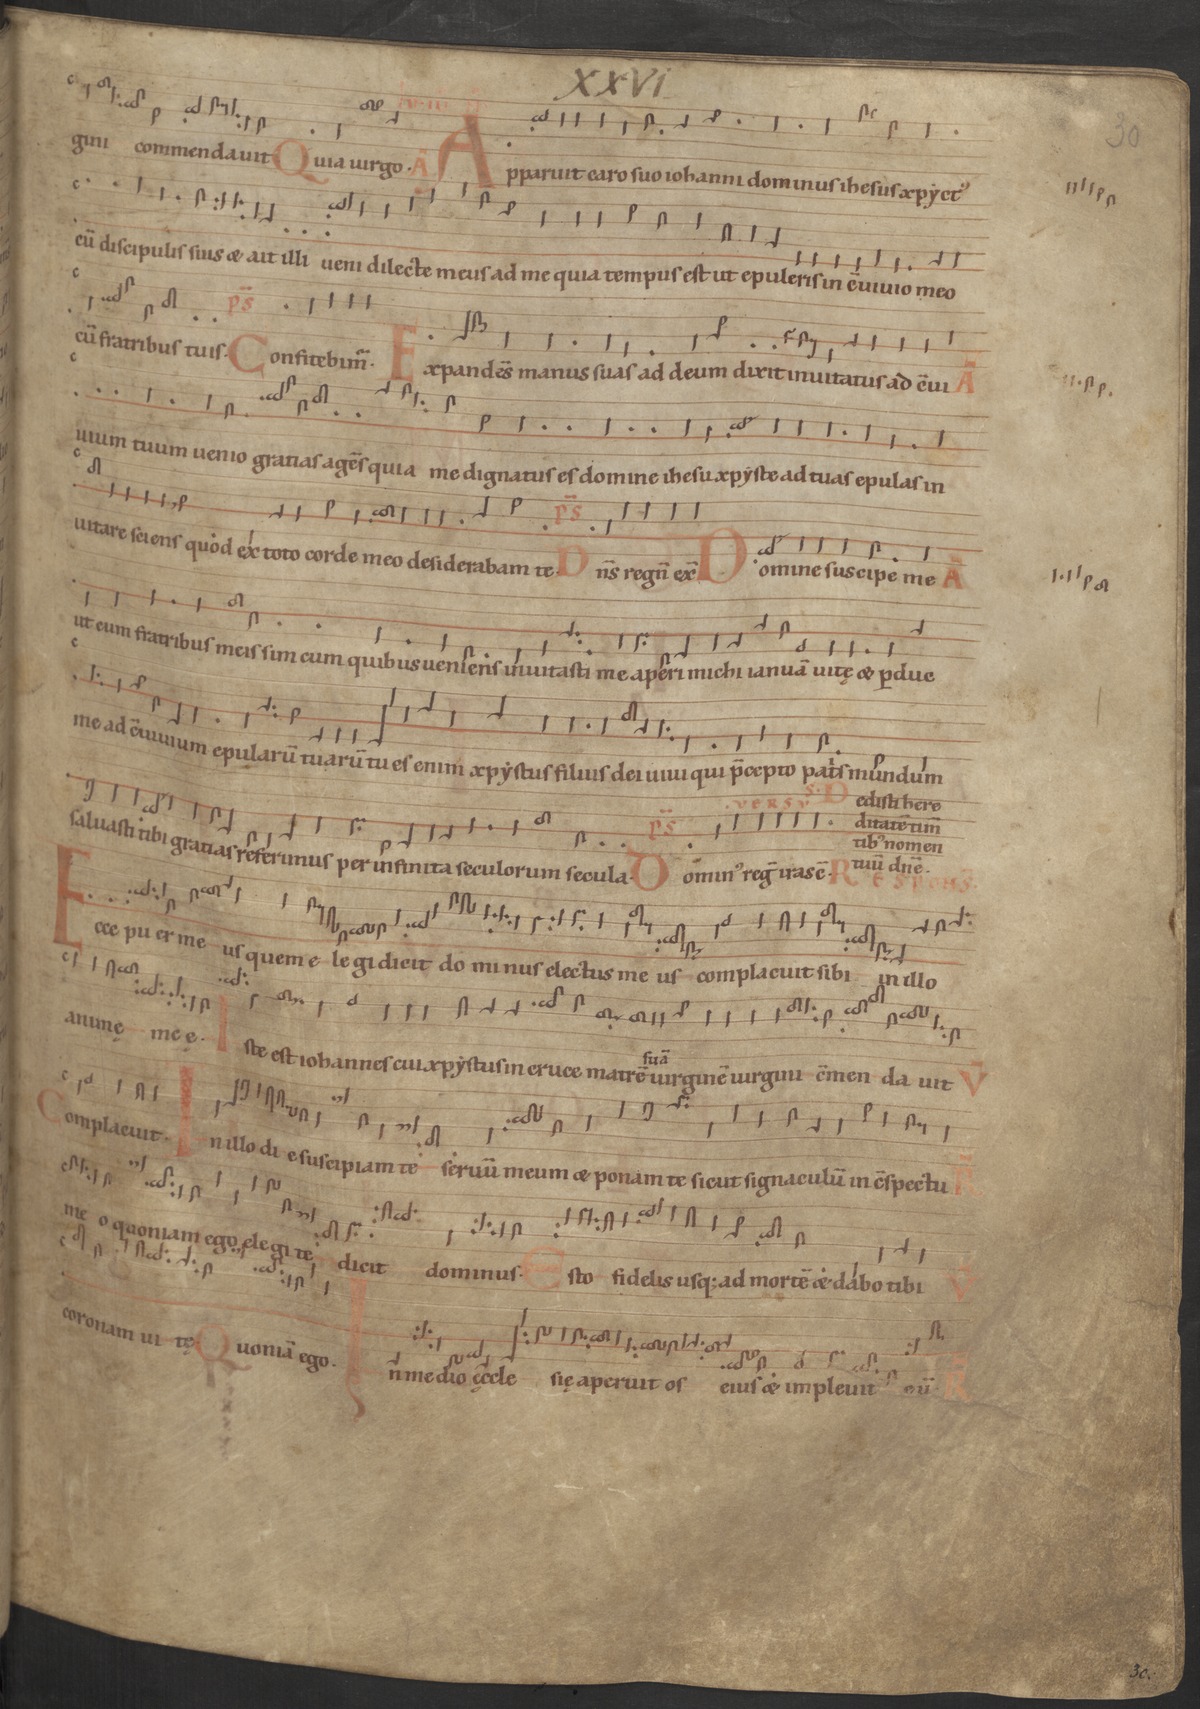 XXVI
30
gini commendavit Quia virgo. A Apparuit caro suo iohanni dominus ihesus xpÿct9
cū discipulis suis & ait illi veni dilecte meus ad me quia tempus est ut epuleris in c̄uiuio meo
cū fratribus tuis. ps Confitebim̄. Expandēs manus suas ad deum dixit inuitatus ad c̄ui A
uium tuum uenio gratias agēs quia me dignatus es domine ihesu xpÿste ad tuas epulas in
uitare sciens quod ex toto corde meo desiderabam te. ps Dn̄s regn̄ ex̄ Domine suscipe me A
ut cum fratribus meis sim cum quibus ueniens inuitasti me aperi michi ianuā uitę & ꝑduc
me ad c̄uiuium epularū tuarū tu es enim xpÿstus filius dei uiui qui p̄cepto pat̄s mundum
saluasti tibi gratias referimus per infinita seculorum secula. ps Domin9 reḡ iras ē. R
VERSV S. Dedisti here
ditatē tim̄
tib9 nomen
tuū dn̄e.
RESPONS.
Ecce puer meus quem elegi dicit dominus electus meus complacuit sibi in illo
animę meę. Iste est iohannes cui xpÿstus in cruce matrē suā uirginē uirgini c̄mendauit V
Complacuit. In illo die suscipiam te seruū meum & ponam te sicut signaculū in c̄spectu R
meo quoniam ego elegi te dicit dominus. Esto fidelis usq; ad mortē & dabo tibi V
coronam uitę. Quoniā ego. In medio ęccle się aperuit os eius & impleuit eū R
30.